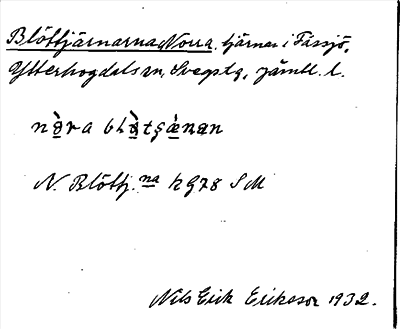 Blöttjärnarna Norra. tjärnar i Fåssjö,
Ytterhogdals sn, Svegs tg, Jämtl. l.
nꝍ̀ra blꝍ̀tgæ̀nan
N. Blöttj.na kg 78 SM
Nils Erik Eriksson 1932.